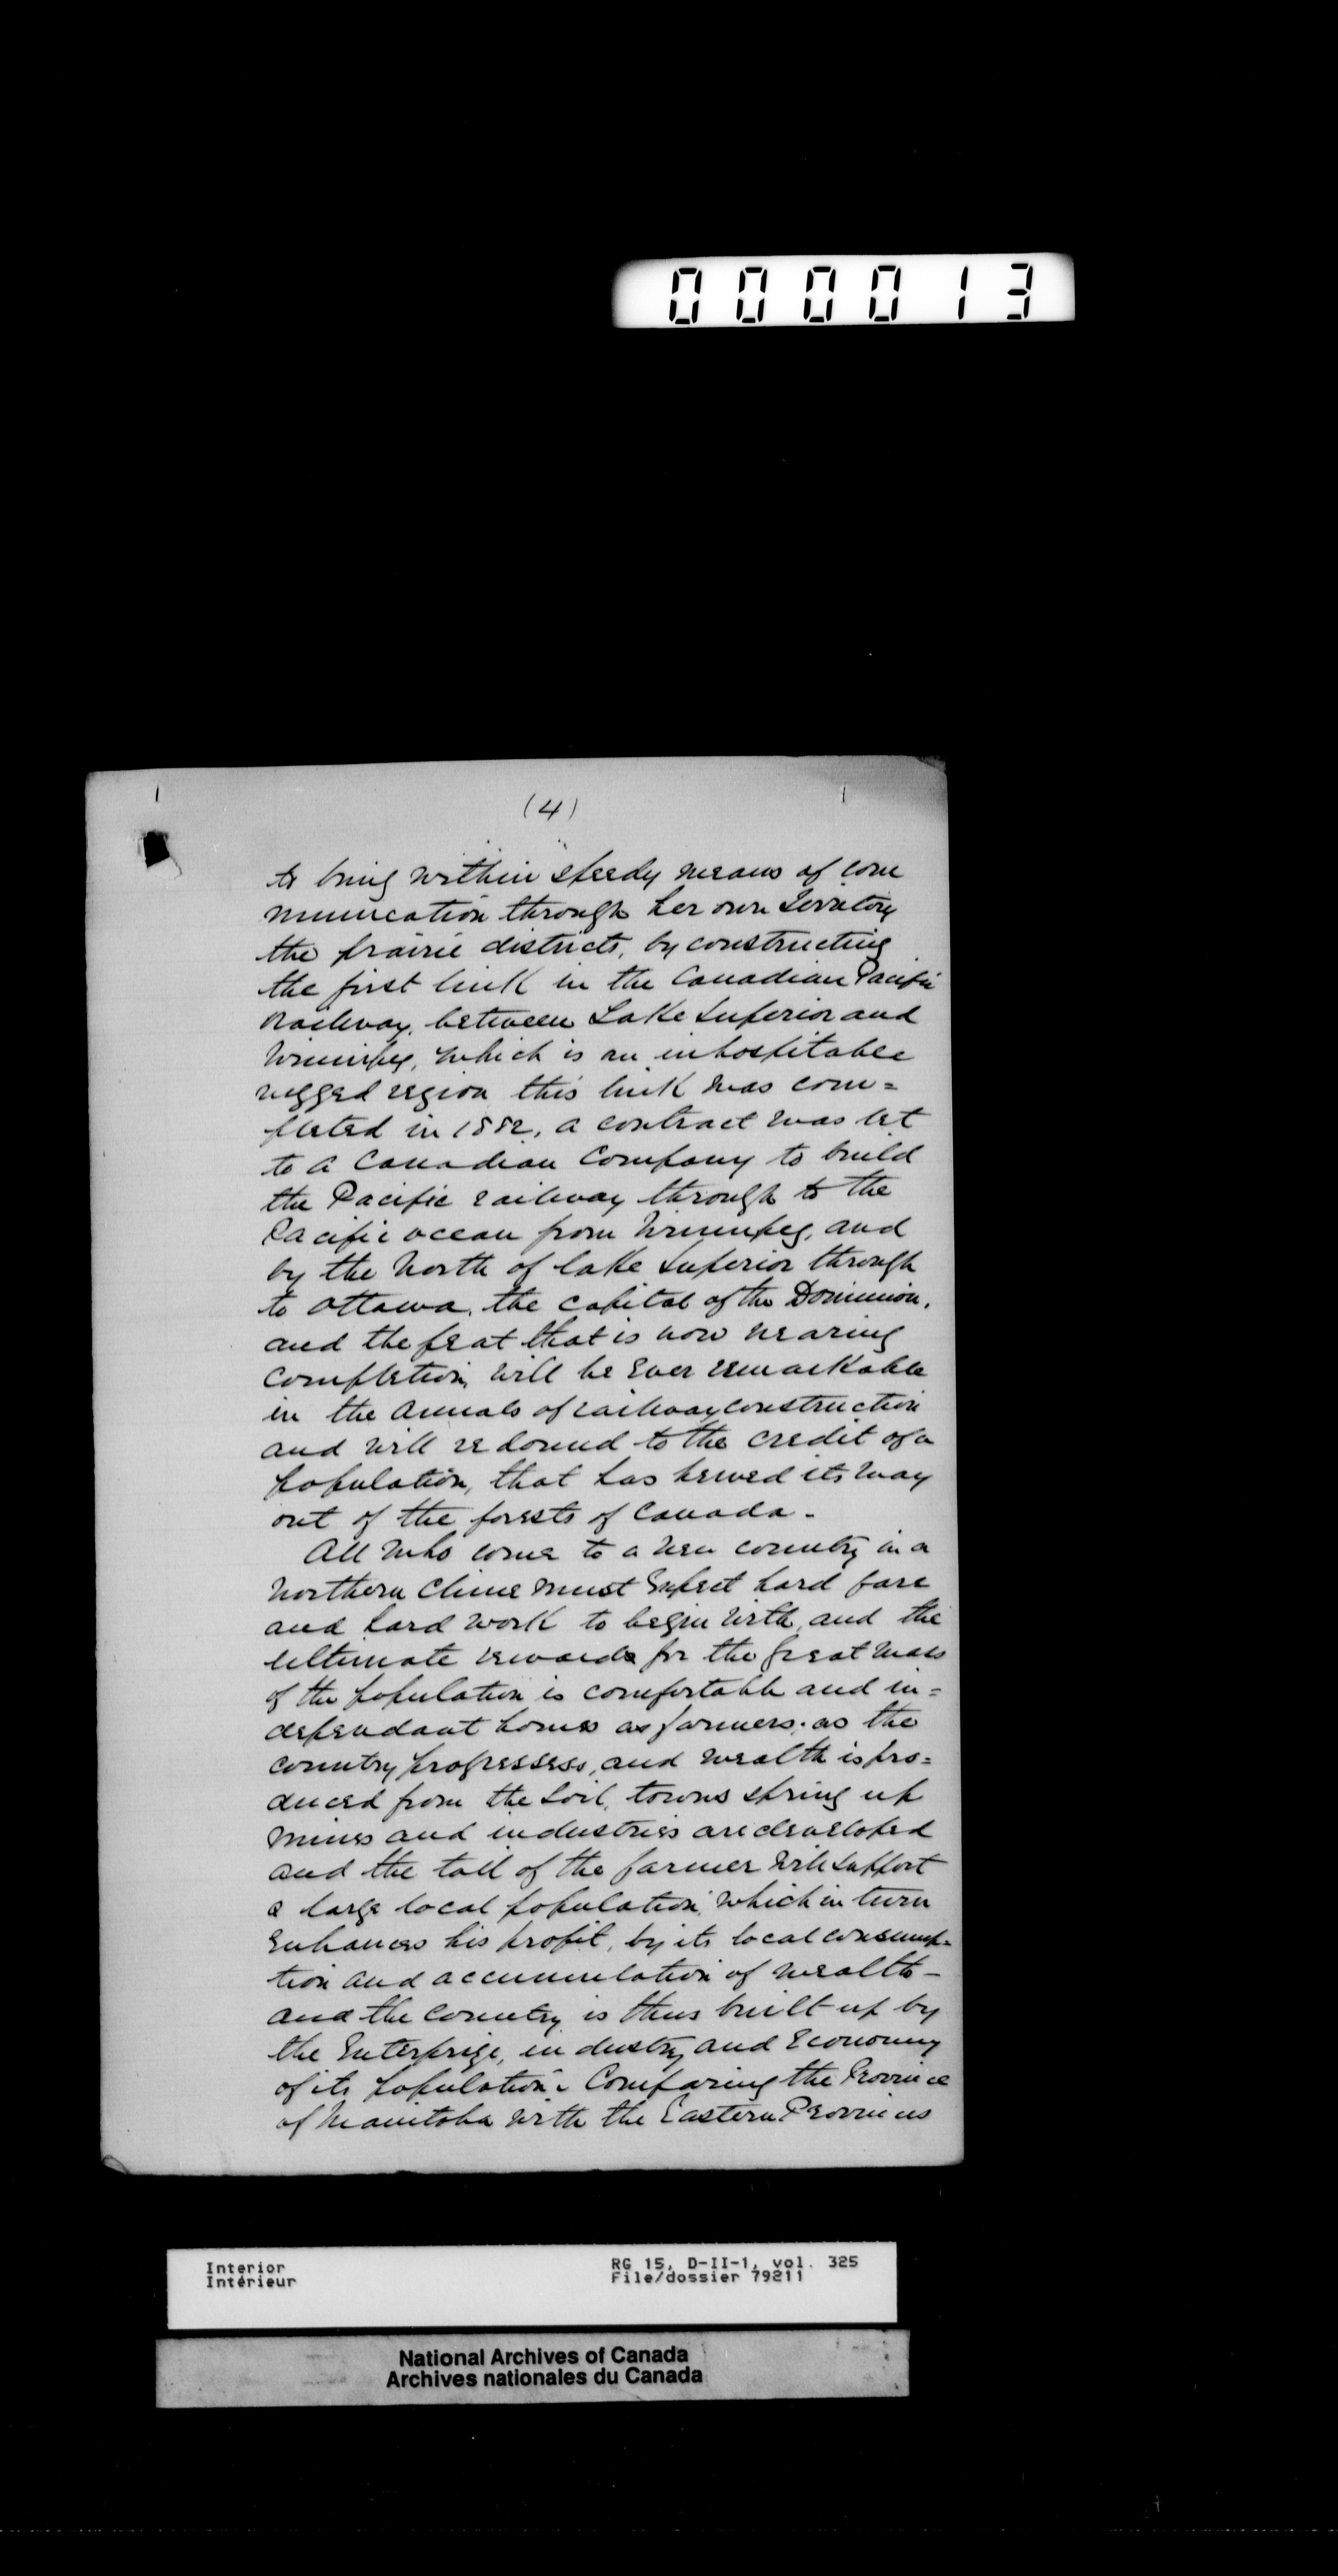 000013
(4)
to bring within speedy means of com
munication through her own Territory
the prairie districts, by constructing
the first link in the Canadian Pacific
Railway, between Lake Superior and
Winnipeg, which is an inhospitable
rugged region this link was com=
pleted in 1882, a contract was let
to a Canadian Company to build
the Pacific railway through to the
Pacific ocean from Winnipeg, and
by the North of lake Superior through
to Ottawa, the capital of the Dominion,
and the feat that is now nearing
completion, will be ever remarkable
in the annals of railway construction
and will redound to the credit of a
population, that has hewed its way
out of the forests of Canada -
All who come to a new country in a
Northern Clime must expect hard fare
and hard work to begin with, and the
ultimate rewards for the great mass
of the population is comfortable and in=
dependant homes as farmers. as the
country progressess, and wealth is pro=
duced from the soil, towns spring up
Mines and industries are developed
and the toil of the farmer will support
a large local population, which in turn
enhances his profit, by its local consump-
tion and accumulation of wealth -
and the country is thus built up by
the Enterprize, industry and Economy
of its population. Comparing the Province
of Manitoba with the Eastern Provinces
Interior
Intérieur
RG 15, D-II-1, vol. 325
File/dossier 79211
National Archives of Canada
Archives nationales du Canada